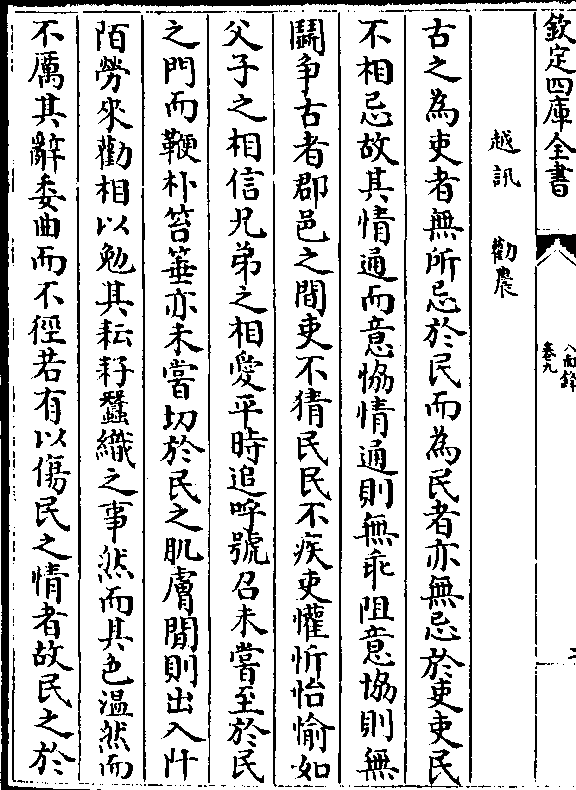 欽定四庫全書
八面鋒
卷九
越訊　勸農
古之為吏者無所忌於民而為民者亦無忌於吏吏民
不相忌故其情通而意恊情通則無乖阻意恊則無
鬭争古者郡邑之間吏不猜民民不疾吏懽忻怡愉如
父子之相信兄弟之相愛平時追呼號召未嘗至於民
之門而鞭朴笞箠亦未嘗切於民之肌膚間則出入阡
陌勞來勸相以勉其耘耔蠶織之事然而其色温然而
不厲其辭委曲而不徑若有以傷民之情者故民之於